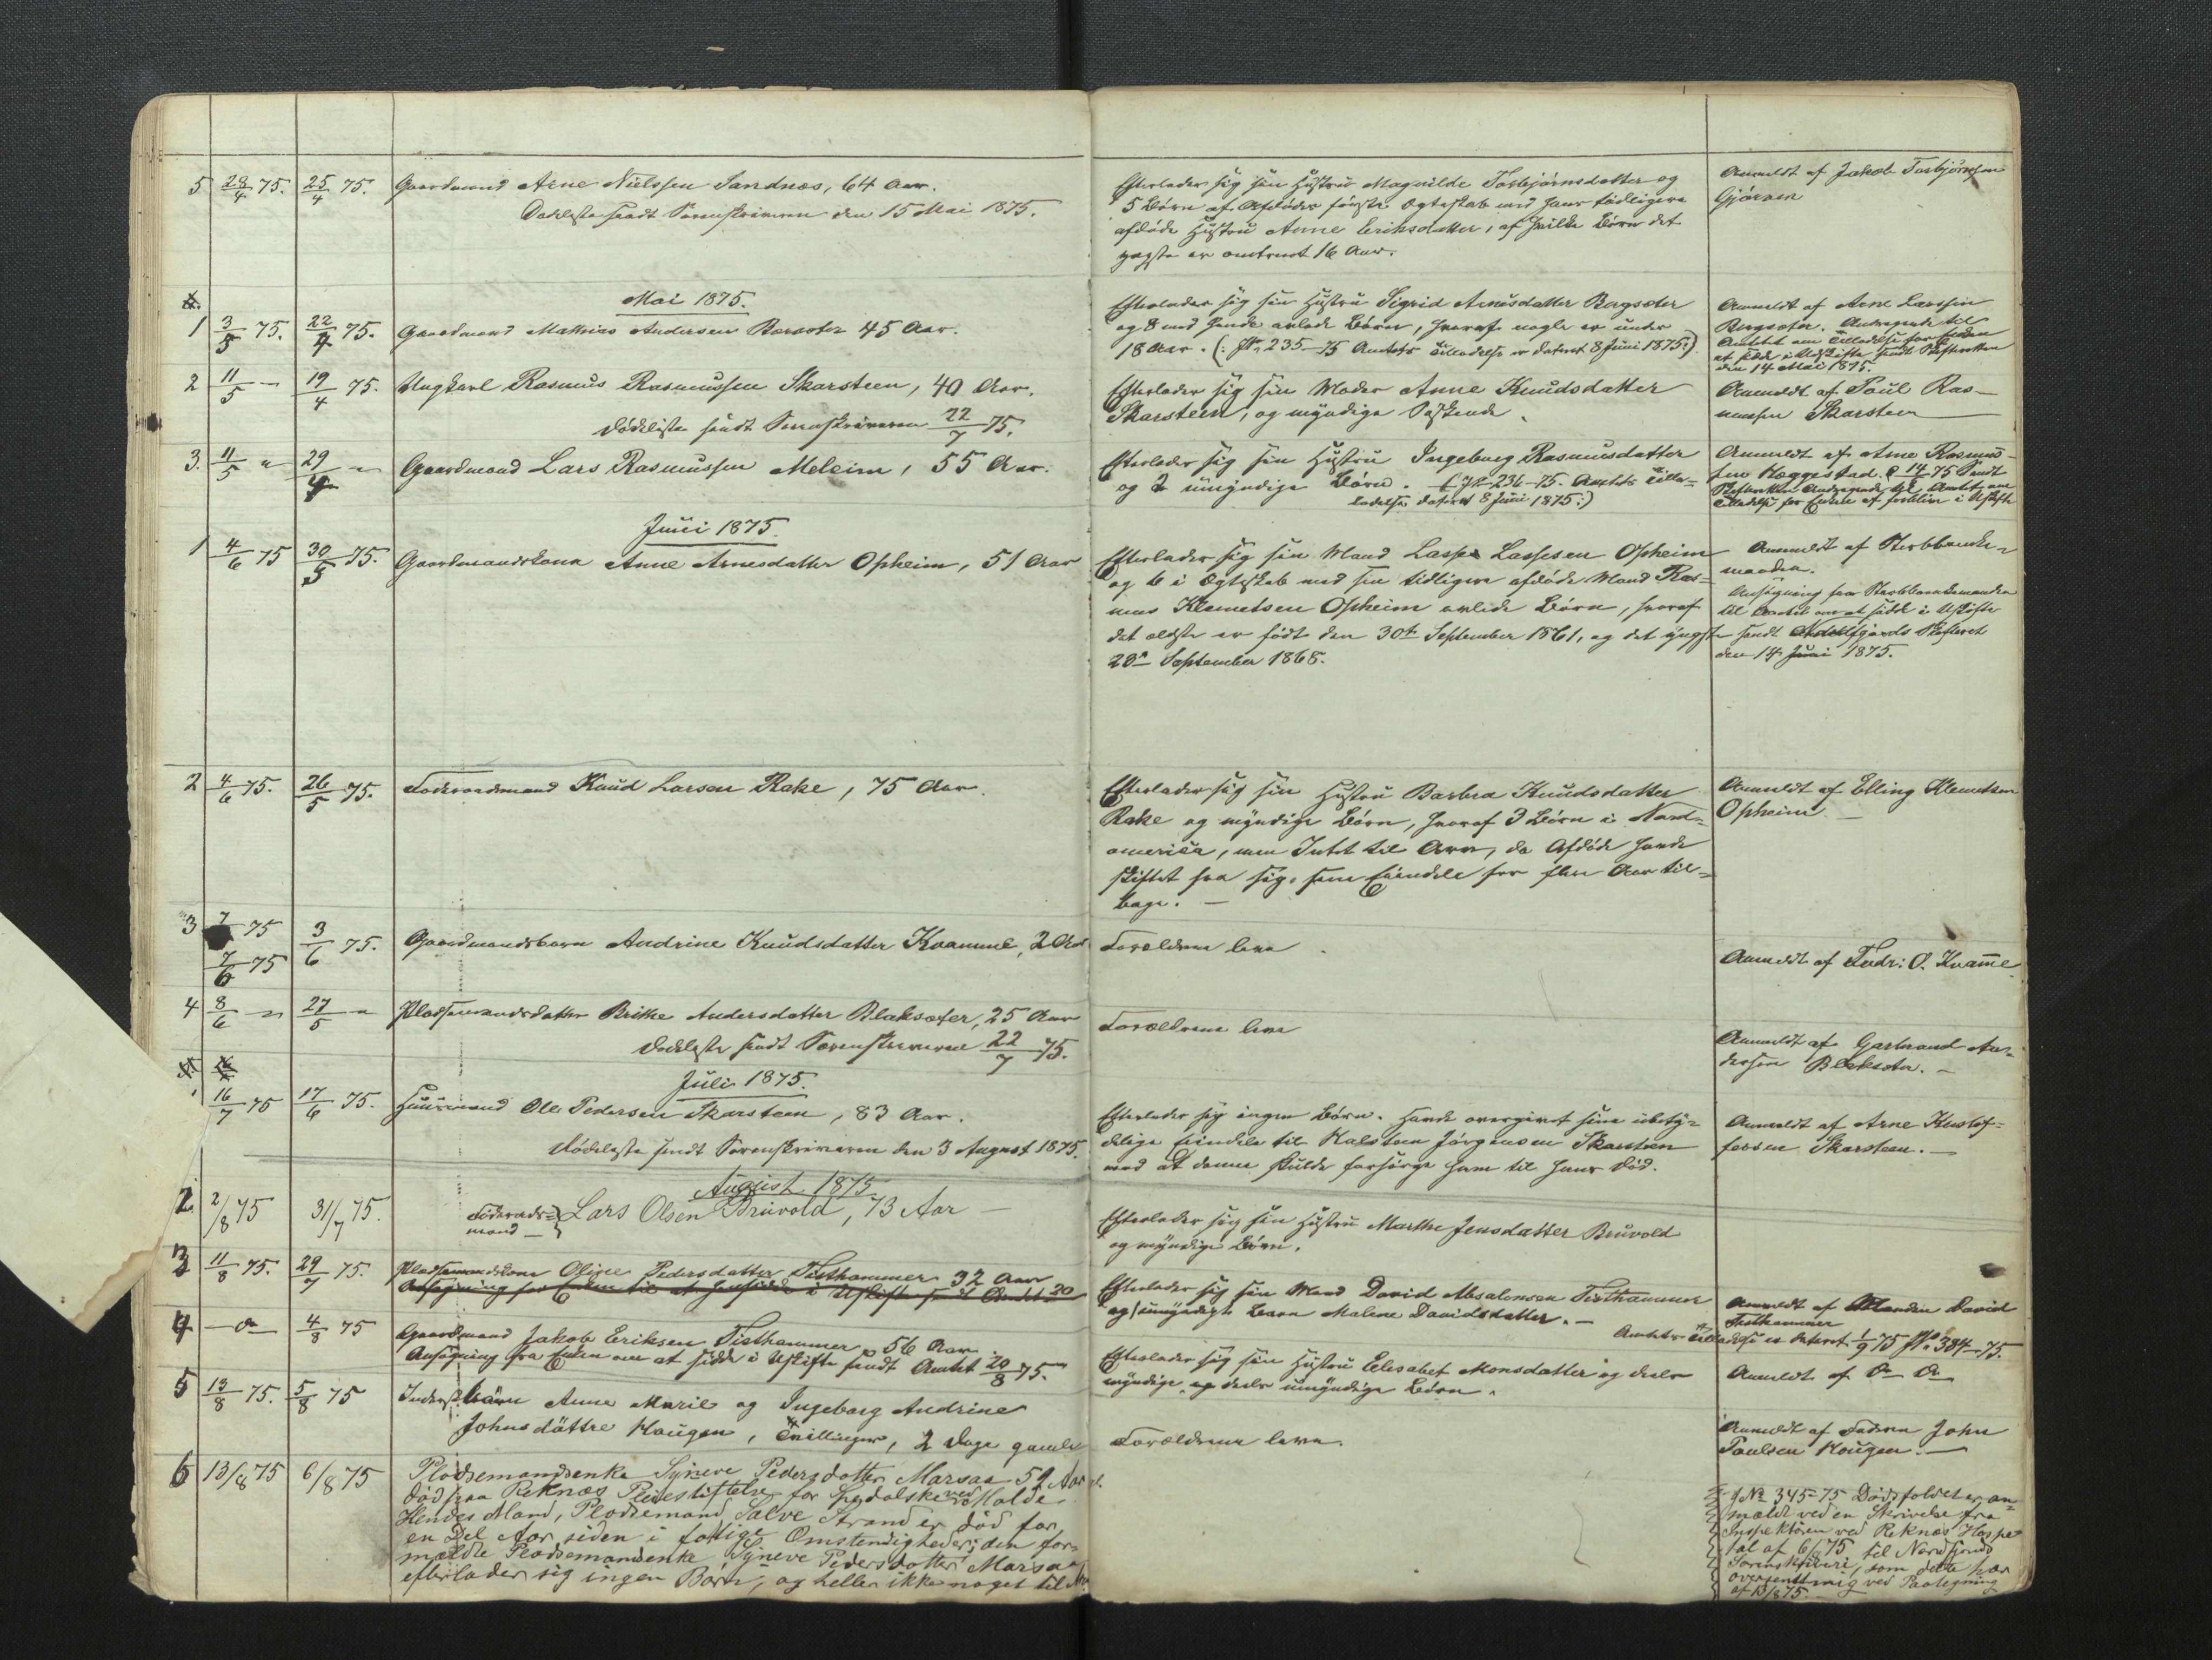 5 29/4 75. 25/4 75. Gaardmand Arne Nielssen Sandnæs, 64 Aar.
Dødsliste sendt Sorenskriveren den 15 Mai 1875.
Efterlader sig sin Hustru Magnilde Torbjørnsdatter og
5 Børn af Afdødes første Ægteskab med hans tidligere
afdøde Hustru Anne Eriksdatter, af hvilke Børn det
yngste er omtrent 16 Aar.
Anmeldt af Jakob Torbjørnsen
Gjørven
Mai 1875.
1 3/5 75. 22/4 75. Gaardmand Mathias Andersen Bagsæter 45 Aar.
Efterlader sig sin Hustru Sigrid Arnesdatter Bagsæter
og 8 med hende avlede Børn, hvoraf nogle er under
18 Aar. (: No 235-75 Amtets Tilladelse er dateret 8 Juni 1875:)
Anmeldt af Arne Larssen
Bergsæter. Andragende til
Amtet om Tilladelse for Enken
at sidde i Uskifte sendt Skifteretten
den 14 Mai 1875.
2 11/5 — 19/4 75. Ungkarl Rasmus Rasmussen Skarsteen, 40 Aar.
Dødsliste sendt Sorenskriveren 22/7 75.
Efterlader sig sin Moder Anne Knudsdatter
Skarsteen, og myndige Søskende.
Anmeldt af Poul Ras-
mussen Skarsteen
3. 11/5 " 29/4 " Gaardmand Lars Rasmussen Meleim, 55 Aar.
Efterlader sig sin Hustru Ingeborg Rasmusdatter
og 2 umyndige Børn. (: No 236-75. Amtets Tilla-
delse dateret 8 Juni 1875:)
Anmeldt af Arne Rasmus-
sen Heggestad. 14/5 75 Sendt
Skifteretten Andragende til Amtet om
Tilladelse for Enken at forblive i Uskifte
Juni 1875.
1 4/6 75 30/5 75. Gaardmandskona Anne Arnesdatter Opheim, 51 Aar
Efterlader sig sin Mand Lasse Lassesen Opheim
og 6 i Ægteskab med sin tidligere afdøde Mand Ras-
mus Klemetsen Opheim avlede Børn, hvoraf
det ældste er født den 30te September 1861, og det yngste
20de September 1868.
Anmeldt af Sterbboenke-
manden.
Ansøgning fra Sterbboenkemanden
til Amtet om at sidde i Uskifte
sendt Nordfjords Skifteret
den 14 Juni 1875.
2 4/6 75. 26/5 75. Føderaadsmand Knud Larsen Rake, 75 Aar.
Efterlader sig sin Hustru Barbra Knudsdatter
Rake og myndige Børn, hvoraf 3 Børn i Nord-
america, men Intet til Arv, da Afdøde havde
skiftet fra sig sine Eiendele for flere Aar til-
bage. —
Anmeldt af Elling Klemetsen
Opheim. —
3 7/ 75
7/6 75 3/6 75. Gaardmandsbarn Andrine Knudsdatter Kvamme, 2 Aar
Forældrene leve.
Anmeldt af Fredr: O. Kvamme
4 8/6 — 27/5 " Pladsemandsdatter Brithe Andersdatter Blaksæter, 25 Aar
Dødsliste sendt Sorenskriveren 22/7 75.
Forældrene leve
Anmeldt af Gartmand An-
dersen Blaksæter. —
Juli 1875.
16/7 75 17/6 75. Huusmand Ole Pedersen Skarsteen, 83 Aar.
Dødsliste sendt Sorenskriveren den 3 August 1875.
Efterlader sig ingen Børn. Havde overgivet sine ubety-
delige Eiendele til Rasmus Jørgensen Skarsteen
mod at denne skulde forsørge ham til hans Død.
Anmeldt af Arne Kristof-
fersen Skarsteen. —
August 1875
2. 2/8 75 31/7 75. Føderaads-
mand — } Lars Olsen Bruvold, 73 Aar —
Efterlader sig sin Hustru Marthe Jensdatter Bruvold
og myndige Børn.
3 11/8 75. 29/7 75. Pladsemandskone Oline Pedersdatter Tisthammer 32 Aar
Ansøgning fra Enken til at hensidde i Uskifte sendt Amtet 20
Efterlader sig sin Mand David Absalonsen Tisthammer
og 1 umyndigt Barn Malene Davidsdatter. —
Anmeldt af Manden David
Tisthammer
4 — do — 4/8 75 Gaardmand Jakob Eriksen Tisthammer 56 Aar
Ansøgning fra Enken om at sidde i Uskifte sendt Amtet 20/8 75.
Amtets Tilladelse er dateret 1/9 75 No 384-75.
Efterlader sig sin Hustru Elisabet Monsdatter og deels
myndige og deels umyndige Børn.
Anmeldt af do do
5 13/8 75. 5/8 75 Inderstbørn Anne Marie og Ingeborg Andrine
Johnsdøttre Haugen, Tvillinger, 2 Dage gamle
Forældrene leve.
Anmeldt af Faderen John
Paulsen Haugen. —
6 13/8 75 6/8 75 Pladsemandsenke Synneve Pedersdatter Marsaa 54 Aar gl.
Død paa Reknæs Pleiestiftelse for Spedalske ved Molde.
Hendes Mand, Pladsemand Salve Strand er død for
en Del Aar siden i fattige Omstendigheder; den for-
mældte Pladsemandsenke Synneve Pedersdotter Marsaa
efterlader sig ingen Børn, og heller ikke noget til Arv
J No 345-75 Dødsfaldet er an-
meldt ved en Skrivelse fra
Inspektøren ved Reknæs Hospi-
tal af 6/8 75 til Nordfjords
Sorenskriveri, som dette har
oversendt mig ved Paategning
af 13/8 75.